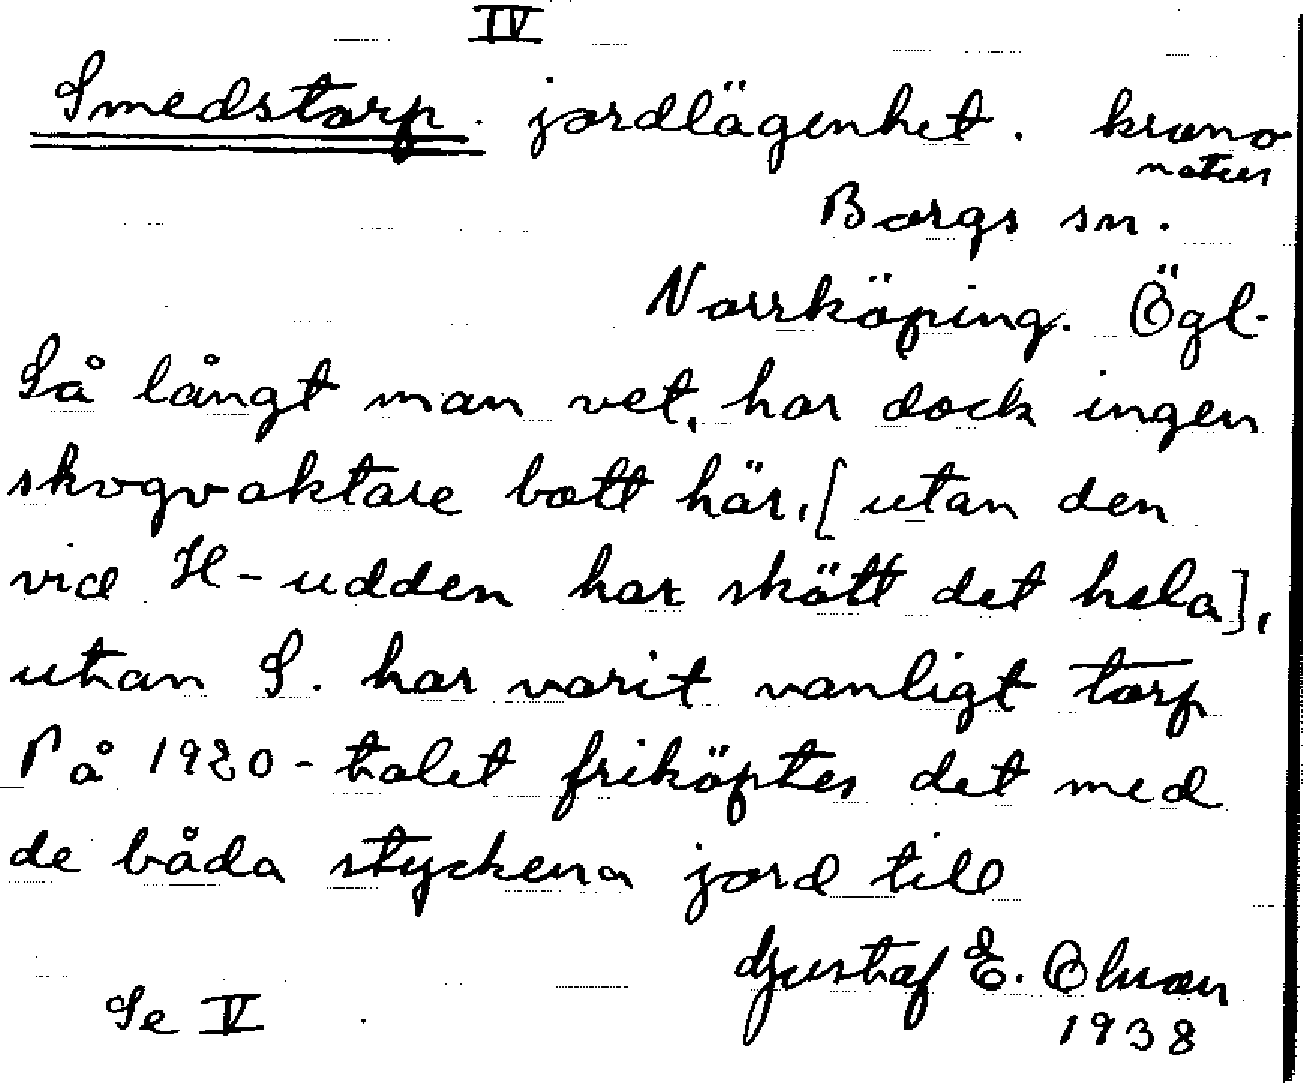 IV
Smedstorp. jordlägenhet. krono
natur
Borgs sn.
Norrköping. Ögl.
Så långt man vet, har dock ingen
skogvaktare bott här, [utan den
vid H-udden har skött det hela],
utan S. har varit vanligt torp
På 1920-talet friköptes det med
de båda styckena jord till
Gustaf E. Olsson
Se V
1938